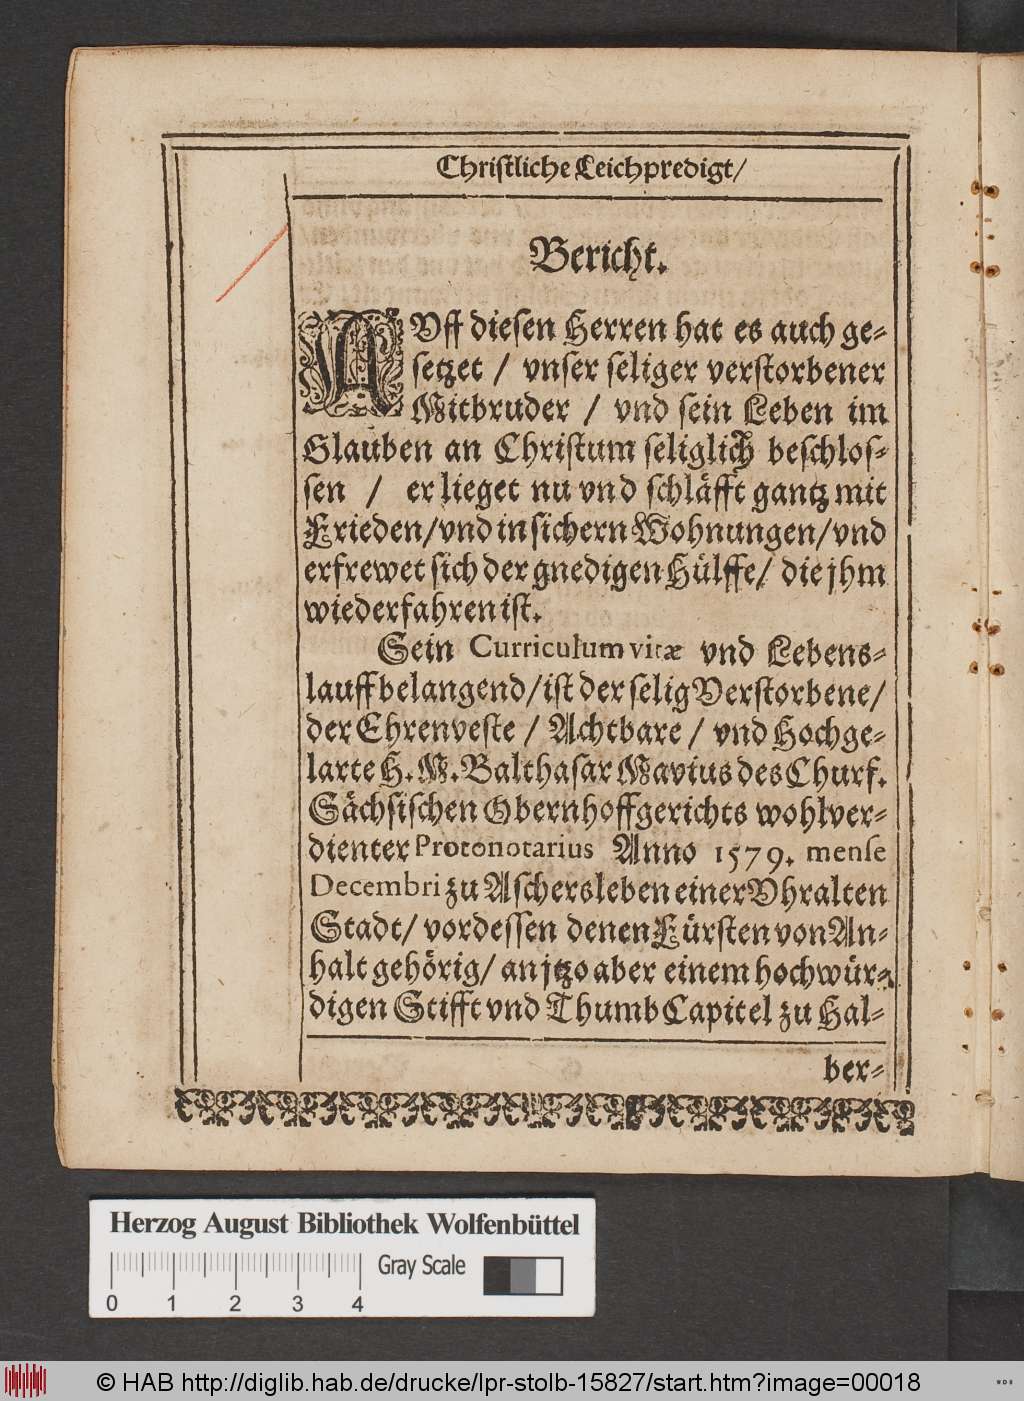 Christliche Leichpredigt/
Bericht.
AVff diesen Herren hat es auch ge-
setzet / vnser seliger verstorbener
Mitbruder / vnd sein Leben im
Glauben an Christum seliglich beschlos-
sen / er lieget nu vnd schläfft gantz mit
Frieden/vnd in sichern Wohnungen/vnd
erfrewet sich der gnedigen Hülffe/ die jhm
wiederfahren ist.
Sein Curriculum vitæ vnd Lebens-
lauff belangend/ist der selig Verstorbene/
der Ehrenveste / Achtbare / vnd Hochge-
larte H. M. Balthasar Mavius des Churf.
Sächsischen Obernhoffgerichts wohlver-
dienter Protonotarius Anno 1579. mense
Decembri zu Aschersleben einer Vhralten
Stadt/ vordessen denen Fürsten von An-
halt gehörig/ an jtzo aber einem hochwür-
digen Stifft vnd Thumb Capitel zu Hal-
ber-
Herzog August Bibliothek Wolfenbüttel
Gray Scale
0 1 2 3 4
© HAB http://diglib.hab.de/drucke/lpr-stolb-15827/start.htm?image=00018